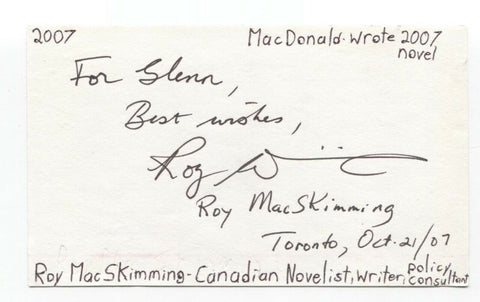 2007
MacDonald-wrote 2007
novel
For Glenn,
Best wishes,
Roy
Roy MacSkimming
Toronto, Oct. 21/07
Roy MacSkimming-Canadian Novelist, writer, policy
consultant